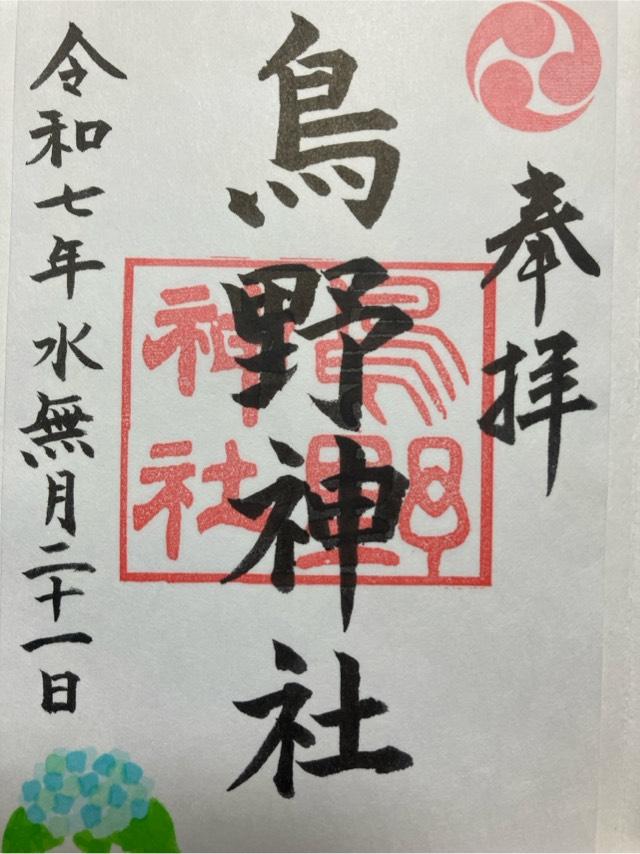 奉拝
鳥野神社
鳥野神社
令和七年水無月二十一日